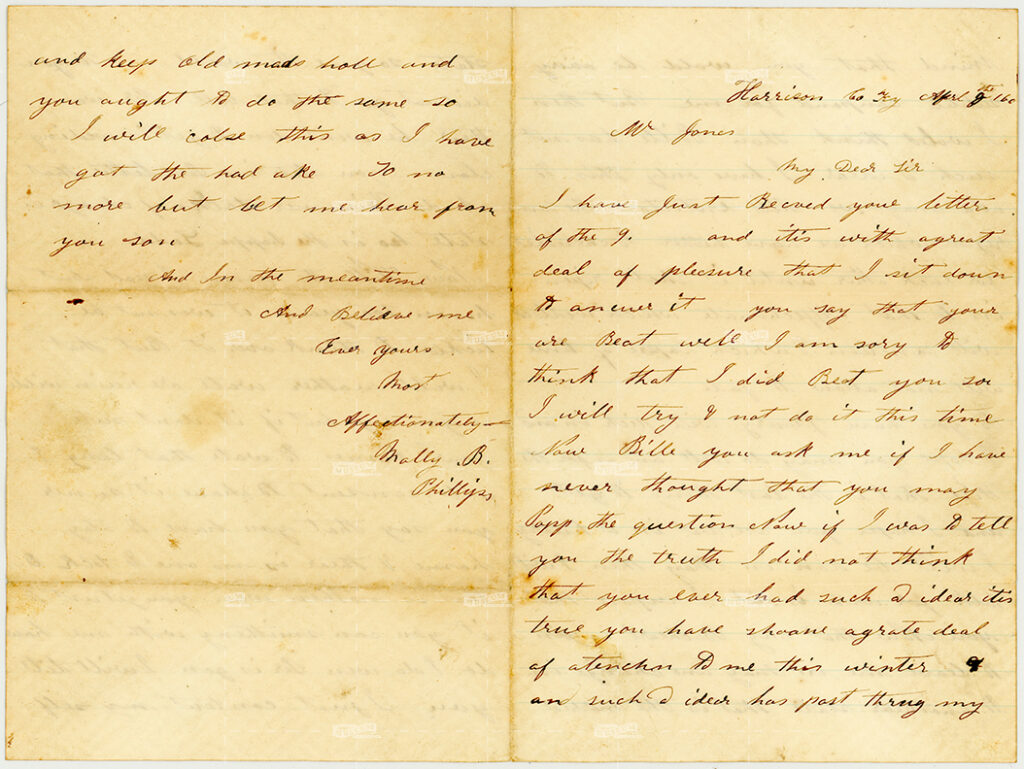 and keep old mads holl and
you aught to do the same so
I will colse this as I have
got the had ake To no
more but let me hear from
you son
And In the meantime
And Believe me
Ever yours
Most
Affectionately
Molly B.
Phillips
Harrison Co Ky Aprl
Mr Jones
My Dear Sir
I have Just Recved your letters
of the 9. and itis with agreat
deal of pleasure that I sit down
to ancuer it you say that your
are Beat well I am sory to
think that I did Beat you so
I will try & not do it this time
Now Bille you ask me if I have
never thought that you may
Popp the question Now if I was to tell
you the truth I did not think
that you ever had such a idear itis
true you have shoane agrate deal
of atenchn to me this winter
an such a idear has past thrug my